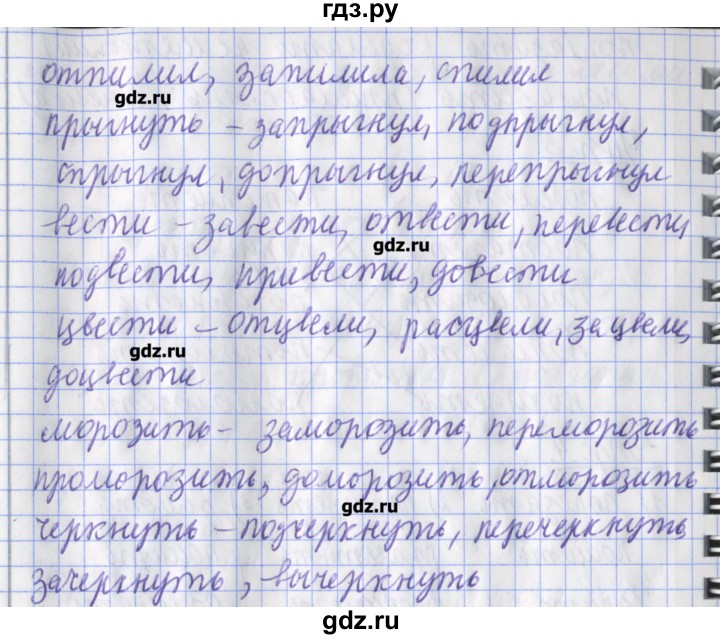 гдз.ру
отпилил, запилила, спилил
gdz.ru
прыгнуть - запрыгнул, подпрыгнул,
спрыгнул, допрыгнул, перепрыгнул
вести - завести, отвести, перевести,
gdz.ru
подвести, привести, довести
цвести - отцвели, расцвели, зацвели,
gdz.ru
доцвести
морозить - заморозить, переморозить
проморозить, доморозить, отморозить
gdz.ru
черкнуть - подчеркнуть, перечеркнуть
зачеркнуть, вычеркнуть
gdz.ru